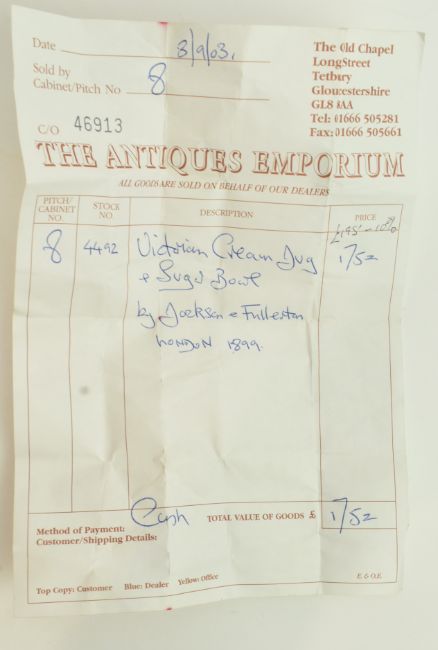 Date 8/9/03.
Sold by
Cabinet/Pitch No 8
The Old Chapel
LongStreet
Tetbury
Gloucestershire
GL8 8AA
Tel: 01666 505281
Fax: 01666 505661
C/O 46913
THE ANTIQUES EMPORIUM
ALL GOODS ARE SOLD ON BEHALF OF OUR DEALERS
PITCH/ CABINET NO. STOCK NO. DESCRIPTION PRICE
£195 - 10%
8 4492 Victorian Cream Jug 152
& Sugar Bowl
by Jackson & Fullerton
LONDON 1899.
Method of Payment: Cash TOTAL VALUE OF GOODS £ 152
Customer/Shipping Details:
Top Copy: Customer Blue: Dealer Yellow: Office E. & O.E.